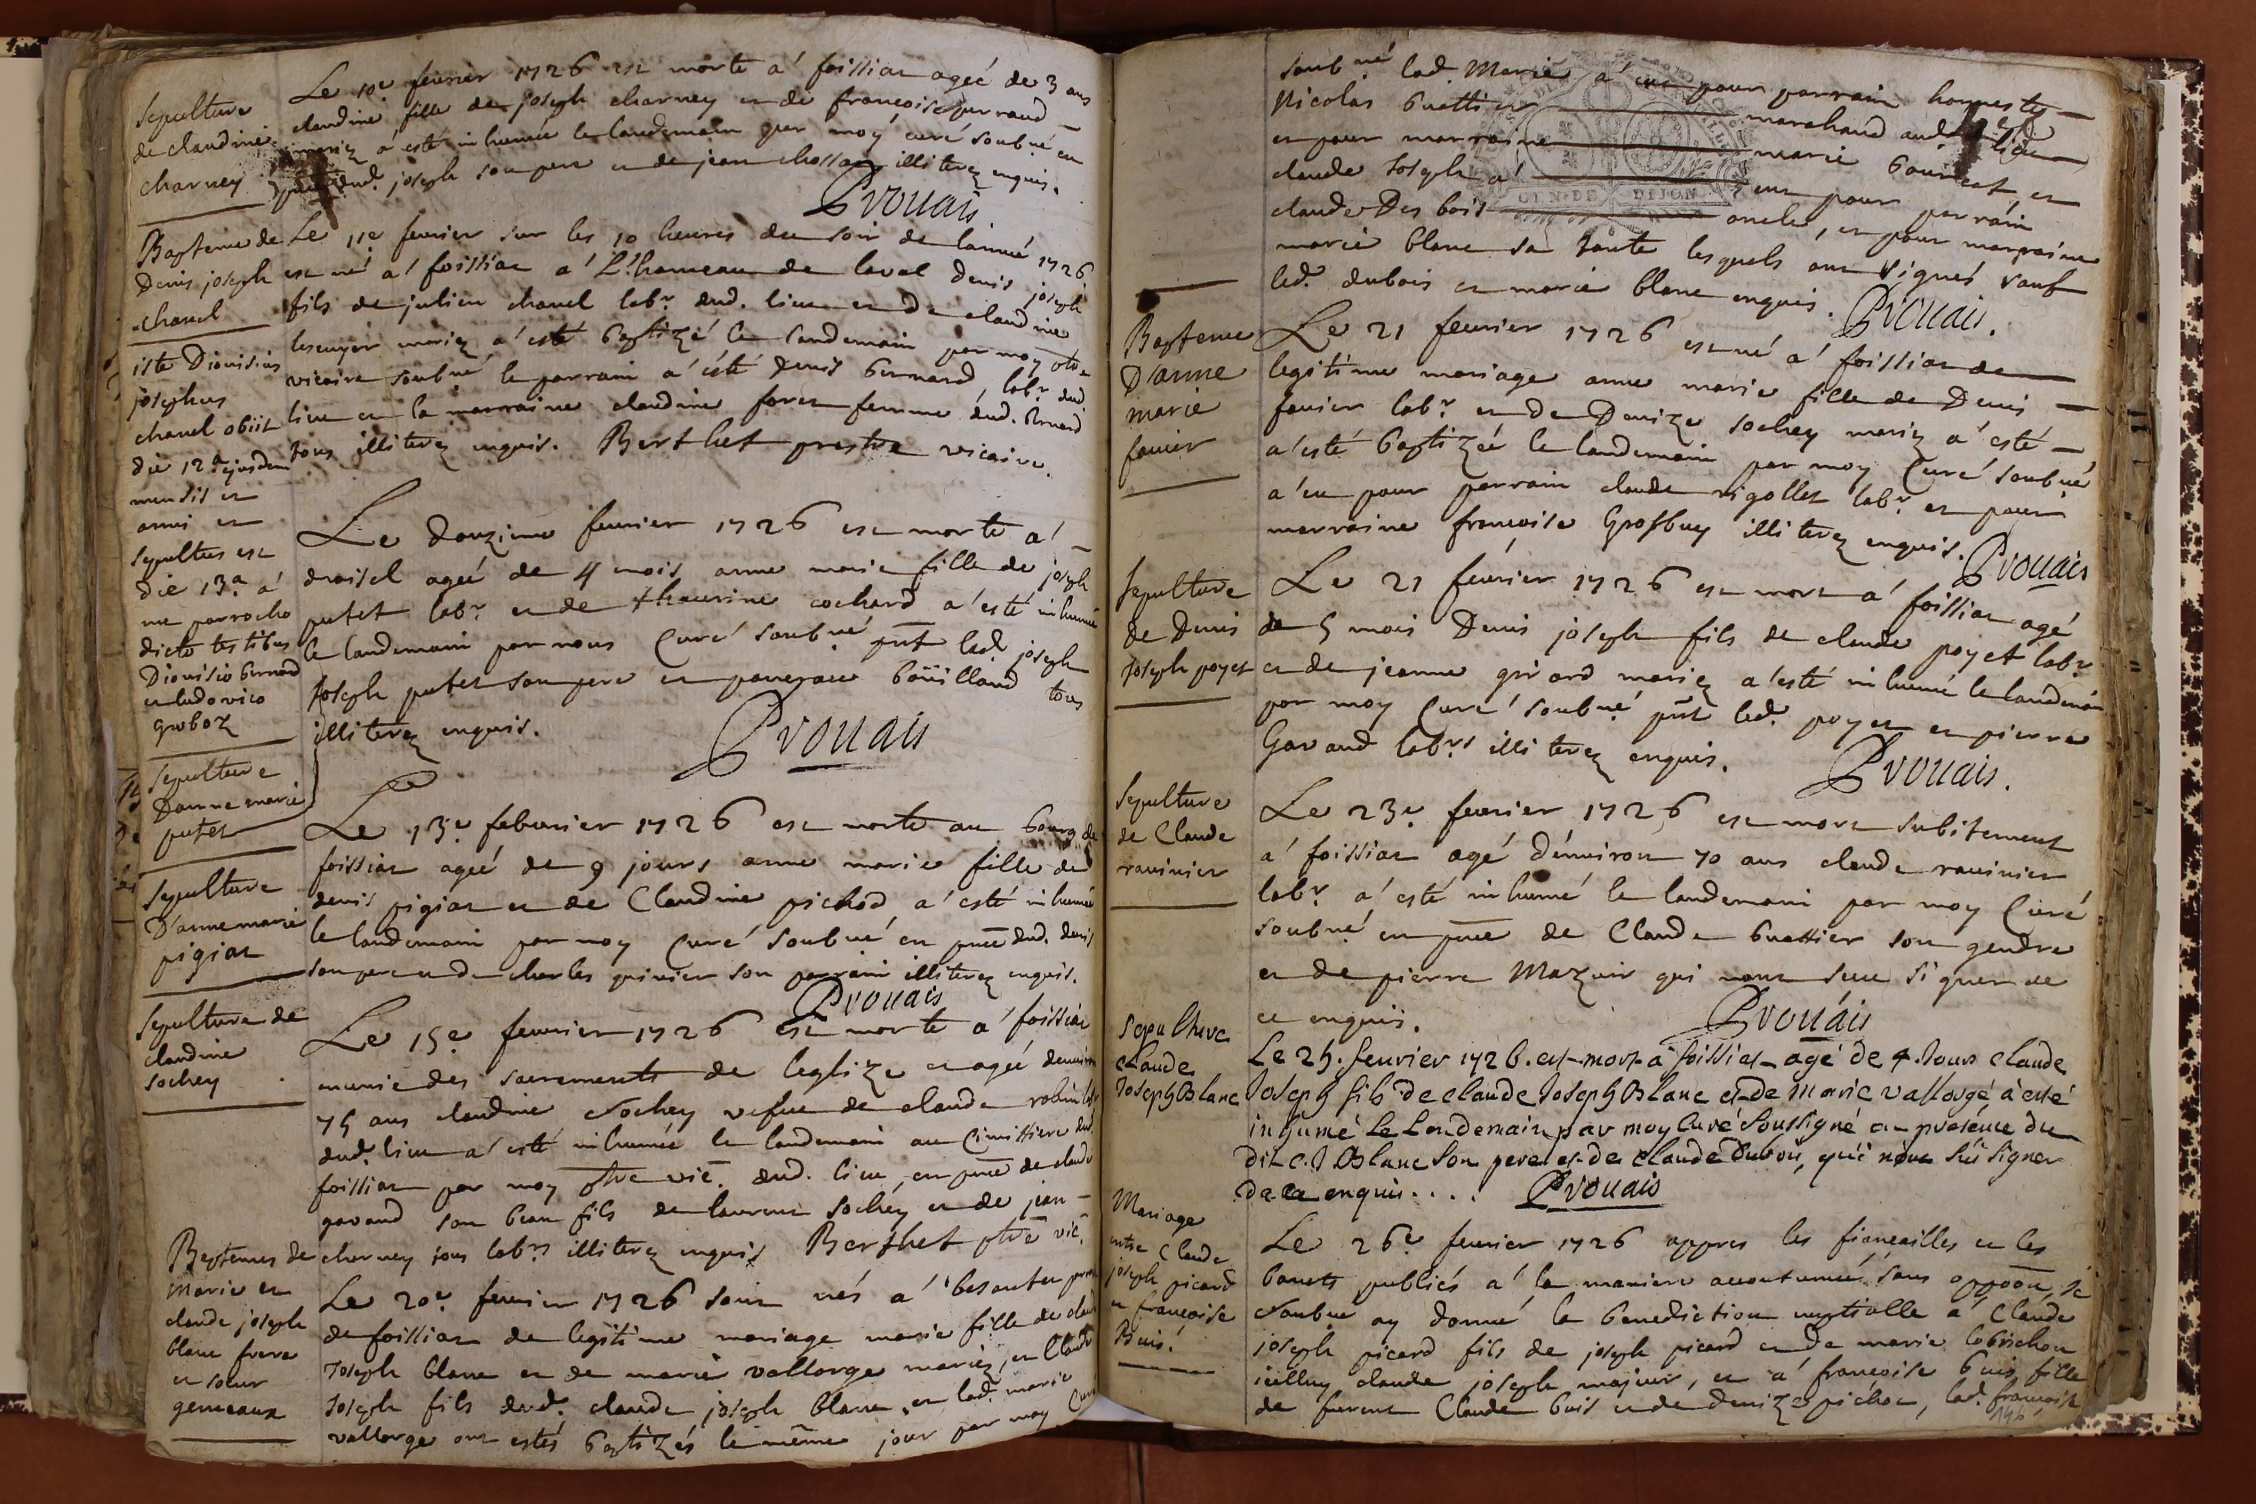 Sepulture
de claudine
charney
Le 10e feurier 1726 est morte a' foissiat ageé de 3 ans
claudine fille de joseph charney et de francoise perraud
mariez a esté inhumée le landemain par moy curé soubné en
pnce dud. joseph son pere et de jean chossat illiterez enquis.
Pvouais
Bapteme de
Denis joseph
chanel
Le 11e feurier sur les 10 heures du soir de l'année 1726
est né a' foissiat a' L'hameau de laval Denis joseph
fils de julien chanel labr. dud. lieu et de claudine
lescuyer mariez a' esté baptizé le landemain par moy ptre
vicaire soubné le parrain a' ésté denis bernard, labr. dud.
lieu et la marraine claudine foret femme dud. bernard
tous illiterez enquis. Berthet prestre vicaire.
iste Dionisius
josephus
chanel obiit
die 12a ejusdem
mensis et
anni et
sepultus est
die 13a. á
me parrocho
dicto testibus
Dionisio bernard
et ludovico
groboz
Sepulture
D'anne marie
putet
Le douzieme feurier 1726 est morte a'
draisel ageé de 4 mois anne marie fille de joseph
putet labr. et de thaurine cochard a' esté inhumé
le landemain par nous Curé soubné pnt led. joseph
Joseph putet son pere et pancrace boüilland tous
illiterez enquis.
Pvouais
Sepulture
D'anne marie
pigiat
Le 13e feburier 1726 est morte au bourg de
foissiat ageé de 9 jours anne marie fille de
denis pigiat et de Claudine pichod a' esté inhumée
le landemain par moy Curé soubné en pnce dud. denis
son pere et de charles privier son parrain illiterez enquis.
Pvouais
Sepulture de
claudine
sochey
Le 15e feurier 1726 est morte a' foissiat
munie des sacrements de leglize et ageé denuiron
75 ans claudine sochey vefue de claude robin labr
dud. lieu a' esté inhumée le landemain au Cimittiere dud.
foissiat par moy ptre vic. dud. lieu, en pnce de claude
gavand son beau fils de laurent sochey et de jean
charney tous labrs illiterez enquis Berthet ptre vic.
Baptemes de
marie et
claude joseph
blanc frere
et soeur
gemeaux
Le 20e feurier 1726 sont nés a' besantet parroisse
de foissiat de legitime mariage marie fille de claude
Joseph blanc et de marie vallorge mariez, et Claude
Joseph fils dud. claude joseph blanc et lad. marie
vallorge ont estés baptizés le même jour par moy Curé
soubné lad. Marie a' eut pour parrain honneste
Nicolas buattier marchand aud. lieu
et pour marraine marie bouvret et
claude Joseph a' eut pour parrain
claude Des bois oncle, et pour marraine
marie blanc sa tante lesquels ont signés sauf
led. dubois et marie blanc enquis. Pvouais.
Bapteme
D'anne
marie
fauier
Le 21 feurier 1726 est né a' foissiat de
legitime mariage anne marie fille de Denis
fauier labr. et de Denize sochey mariez a' esté
a' esté baptizée le landemain par moy Curé soubné
a' eu pour parrain claude rigollet labr. et pour
marraine francoise Grosbuy illiterez enquis. Pvouais
Sepulture
de Denis
Joseph poyet
Le 21 feurier 1726 est mort a' foissiat agé
de 5 mois Denis joseph fils de claude poyet labr.
et de jeanne girard mariez a' esté inhumé le landemain
par moy Curé soubné pnt led. poyet et pierre
Gavand labrs illiterez enquis. Pvouais.
Sepulture
de Claude
rauinier
Le 23e feurier 1726 est mort subitement
a' foissiat agé dénuiron 70 ans claude rauinier
labr. a' esté inhumé le landemain par moy Curé
soubné en pnce de Claude buattier son gendre
et de pierre Mazuir qui nont sceu signer de
ce enquis. Pvouais
Sepulture
claude
Joseph Blanc
Le 25. feurier 1726. est mort a foissiat agé de 4. Jours claude
Joseph fils de claude Joseph Blanc et de Marie vallorgé à esté
inhumé Le Landemain par moy Curé Soussigné en présénce du
dit C. J Blanc Son pere et de Claude Dubois, qui n'ont sü signer
de ce enquis.... Pvouais
Mariage
entre Claude
joseph picard
et francoise
Buis.
Le 26e feurier 1726 appres les fiancailles et les
bancts publiés a' la maniere accoutumée sans oppoon, je
soubné ay donné la benediction nuptialle a' Claude
joseph picard fils de joseph picard et de marie cobichon
icelluy claude joseph majeur, et a' francoise buis fille
de furent Claude buis et de denize pichot, lad. francoise